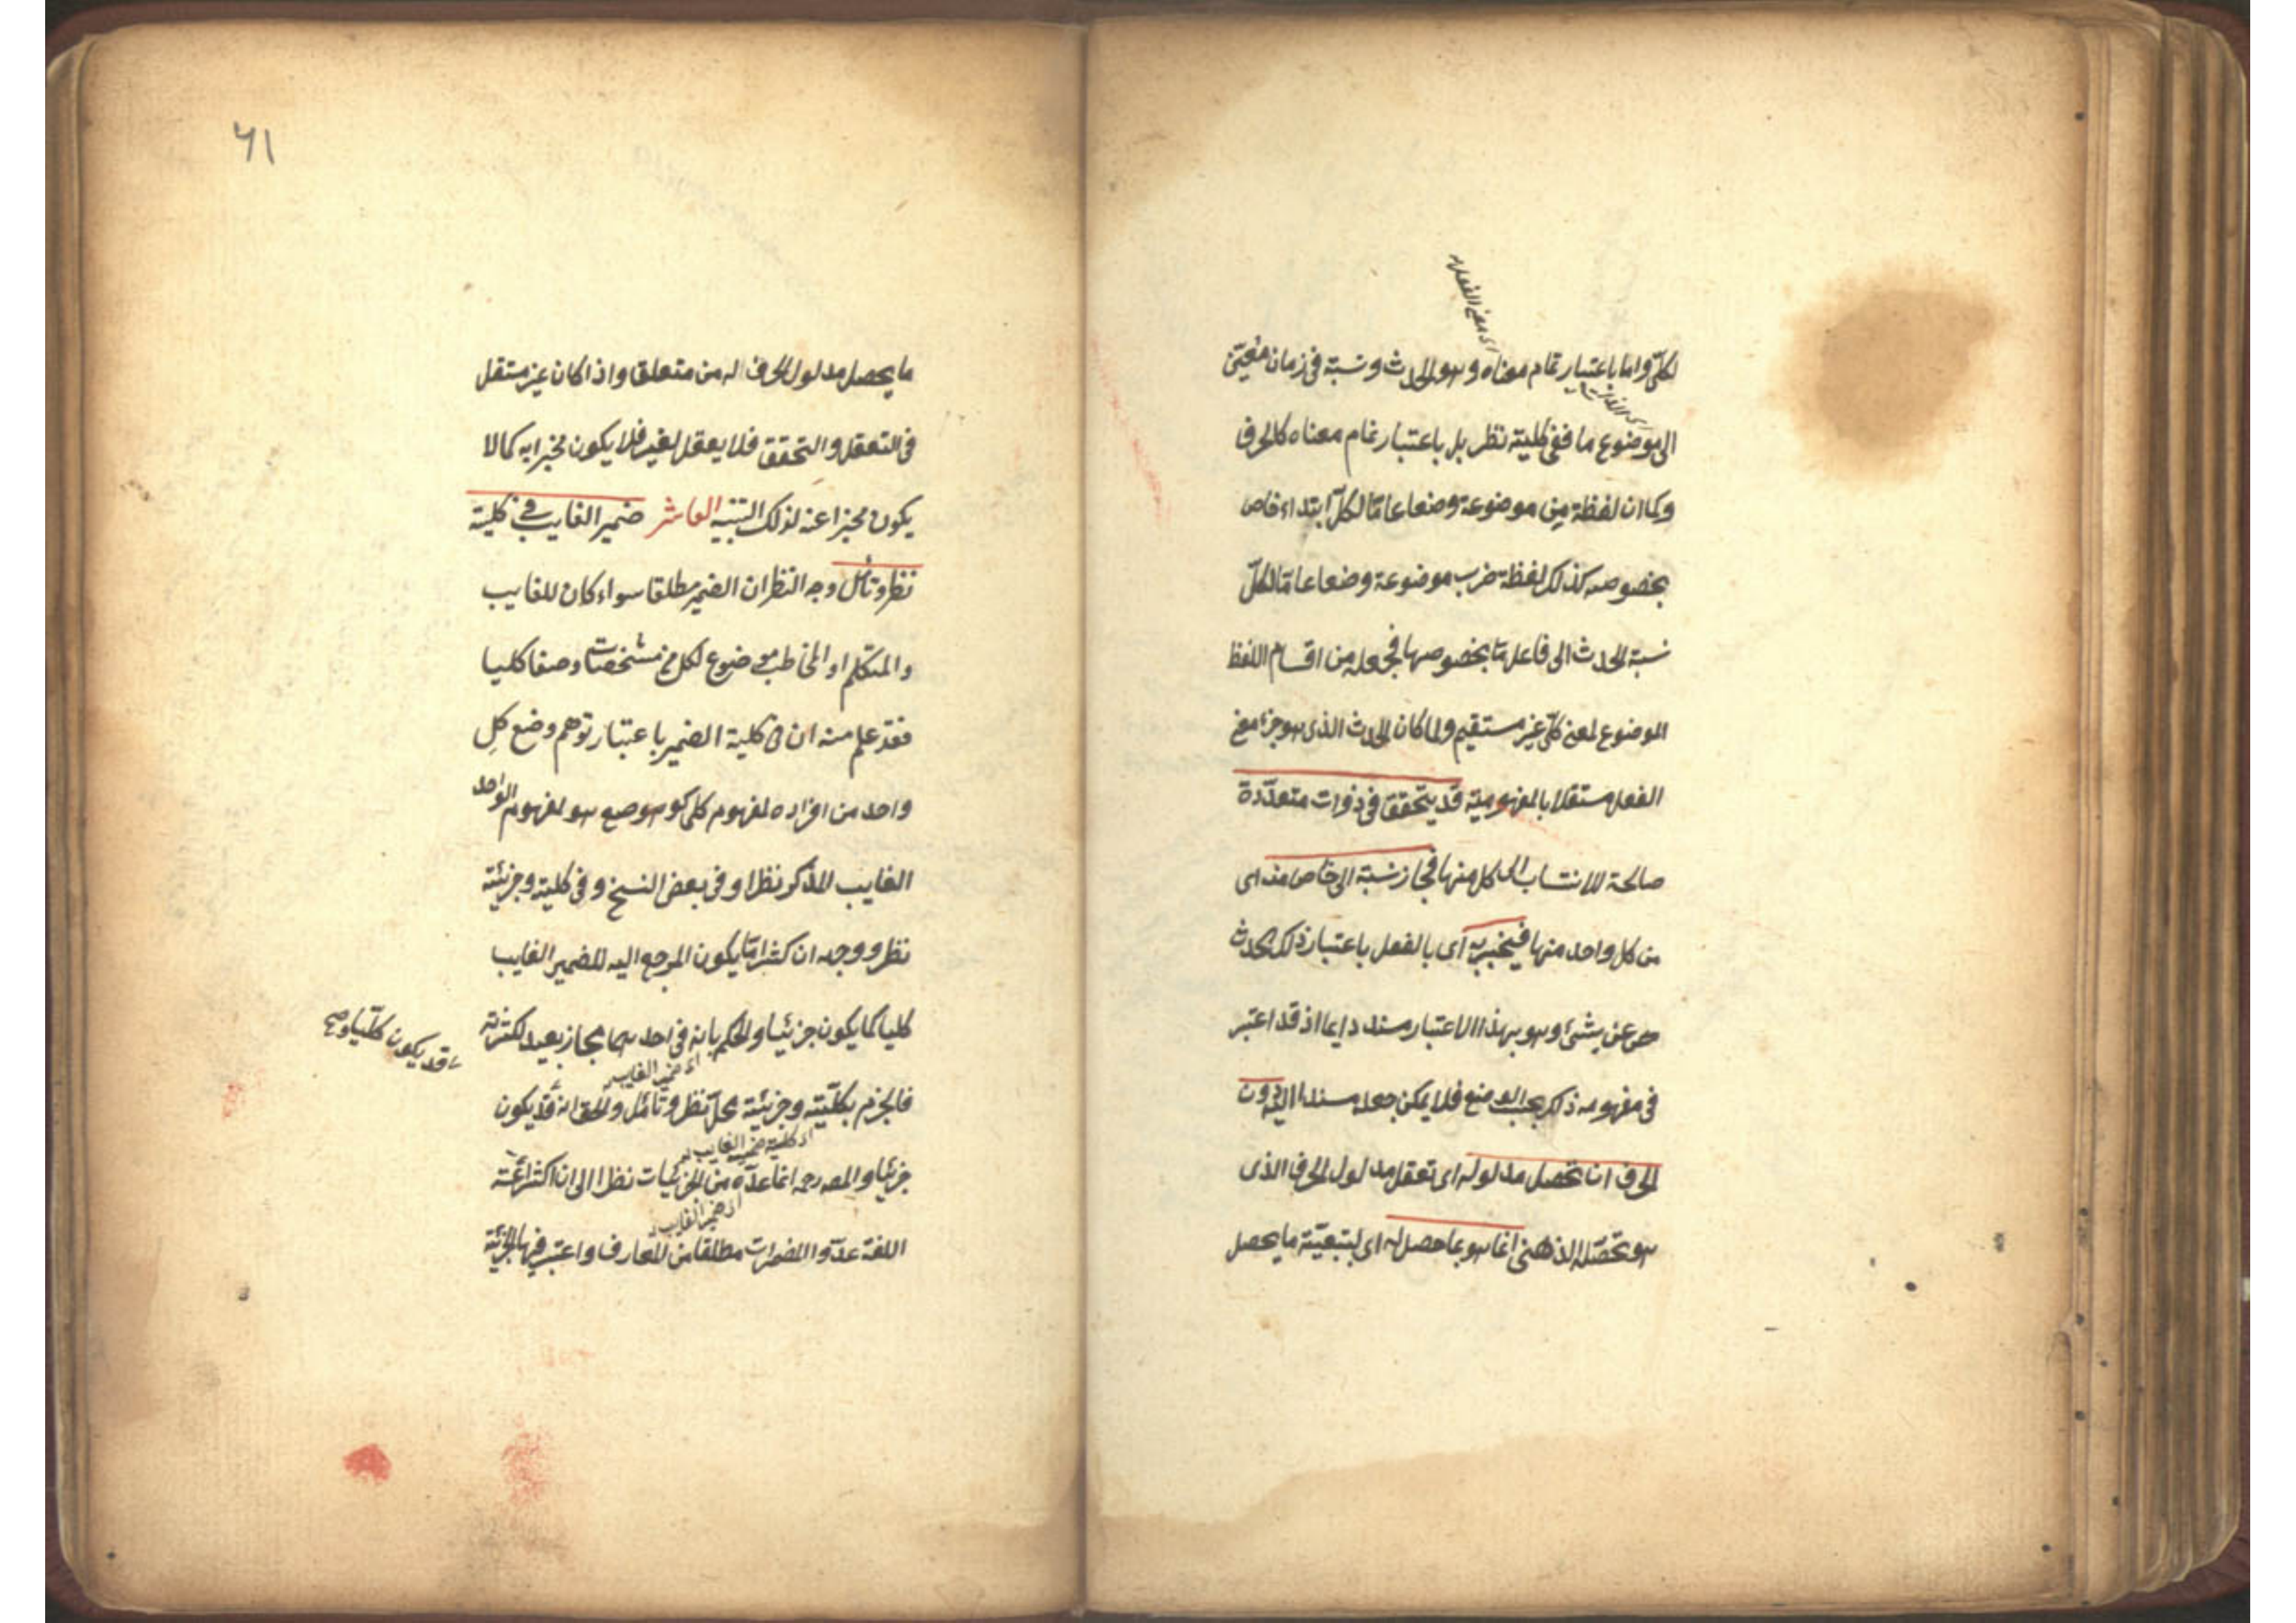 لكلّي واما باعتبار تمام معناه وهو الحدث ونسبة في زمان معيّن
اى معنى الفعل
الى موضوع ما ففى كلية نظر بل باعتبار تمام معناه كالحرف
وكما ان لفظة من موضوعة وضعا عامّا لكلّ ابتداء خاص
بخصوصه كذلك لفظة ضرب موضوعة وضعا عامّا لكلّ
نسبة الحدث الى فاعل ما بخصوصها فجعله من اقسام اللفظ
الموضوع لمعنى كلّى غير مستقيم ولما كان الحدث الذى هو جزء معنى
الفعل مستقلا بالمفهومية قد يتحقق فى ذوات متعدّدة
صالحة للانتساب الى كل منها فجاز نسبته الى خاص منه اى
من كل واحد منها فيخبر به اى بالفعل باعتبار ذلك الحدث
عن شئ وهو بهذا الاعتبار مسند دايما اذ قد اعتبر
فى مفهومه ذلك بحسب الوضع فلا يمكن جعله مسندا اليه دون
الحرف اذ تحصل مدلوله اى تعقل مدلول الحرف الذى
هو تحصّله الذهنى انما هو بما حصل له اى بتبعيّة ما يحصل
٦١
ما يحصل مدلول الحرف له من متعلق واذا كان غير مستقل
فى التعقل والتحقق فلا يعقل لغيره فلا يكون مخبرا به كما لا
يكون مخبرا عنه لذلك التنبيه العاشر ضمير الغايب فى كليته
نظر وتأمّل وجه النظر ان الضمير مطلقا سواء كان للغايب
والمتكلم او المخاطب موضوع لكل من مشخصات وضعا كليا
فقد علم منه ان فى كلية الضمير باعتبار توهم وضع كل
واحد من افراده لمفهوم كلى كوضع هو لمفهوم الواحد
الغايب المذكر نظرا وفى بعض النسخ وفى كليته وجزئيته
نظر ووجهه ان كثيرا ما يكون المرجع اليه للضمير الغايب
كليا كما يكون جزئيا والحكم بانه فى احدهما مجاز بعيد لكثرته
اى ضمير الغايب
فالجزم بكلّيته وجزئيته محلّ نظر وتأمّل والحق انه قد يكون
وقد يكون كلّيا صح
اى كلية ضمير الغايب
جزئيا والمص رحمه انما عدّه من الجزئيات نظرا الى ان اكثر ائمة
اى ضمير الغايب
اللغة عدّوا المضمرات مطلقا من المعارف واعتبر فيها الجزئية